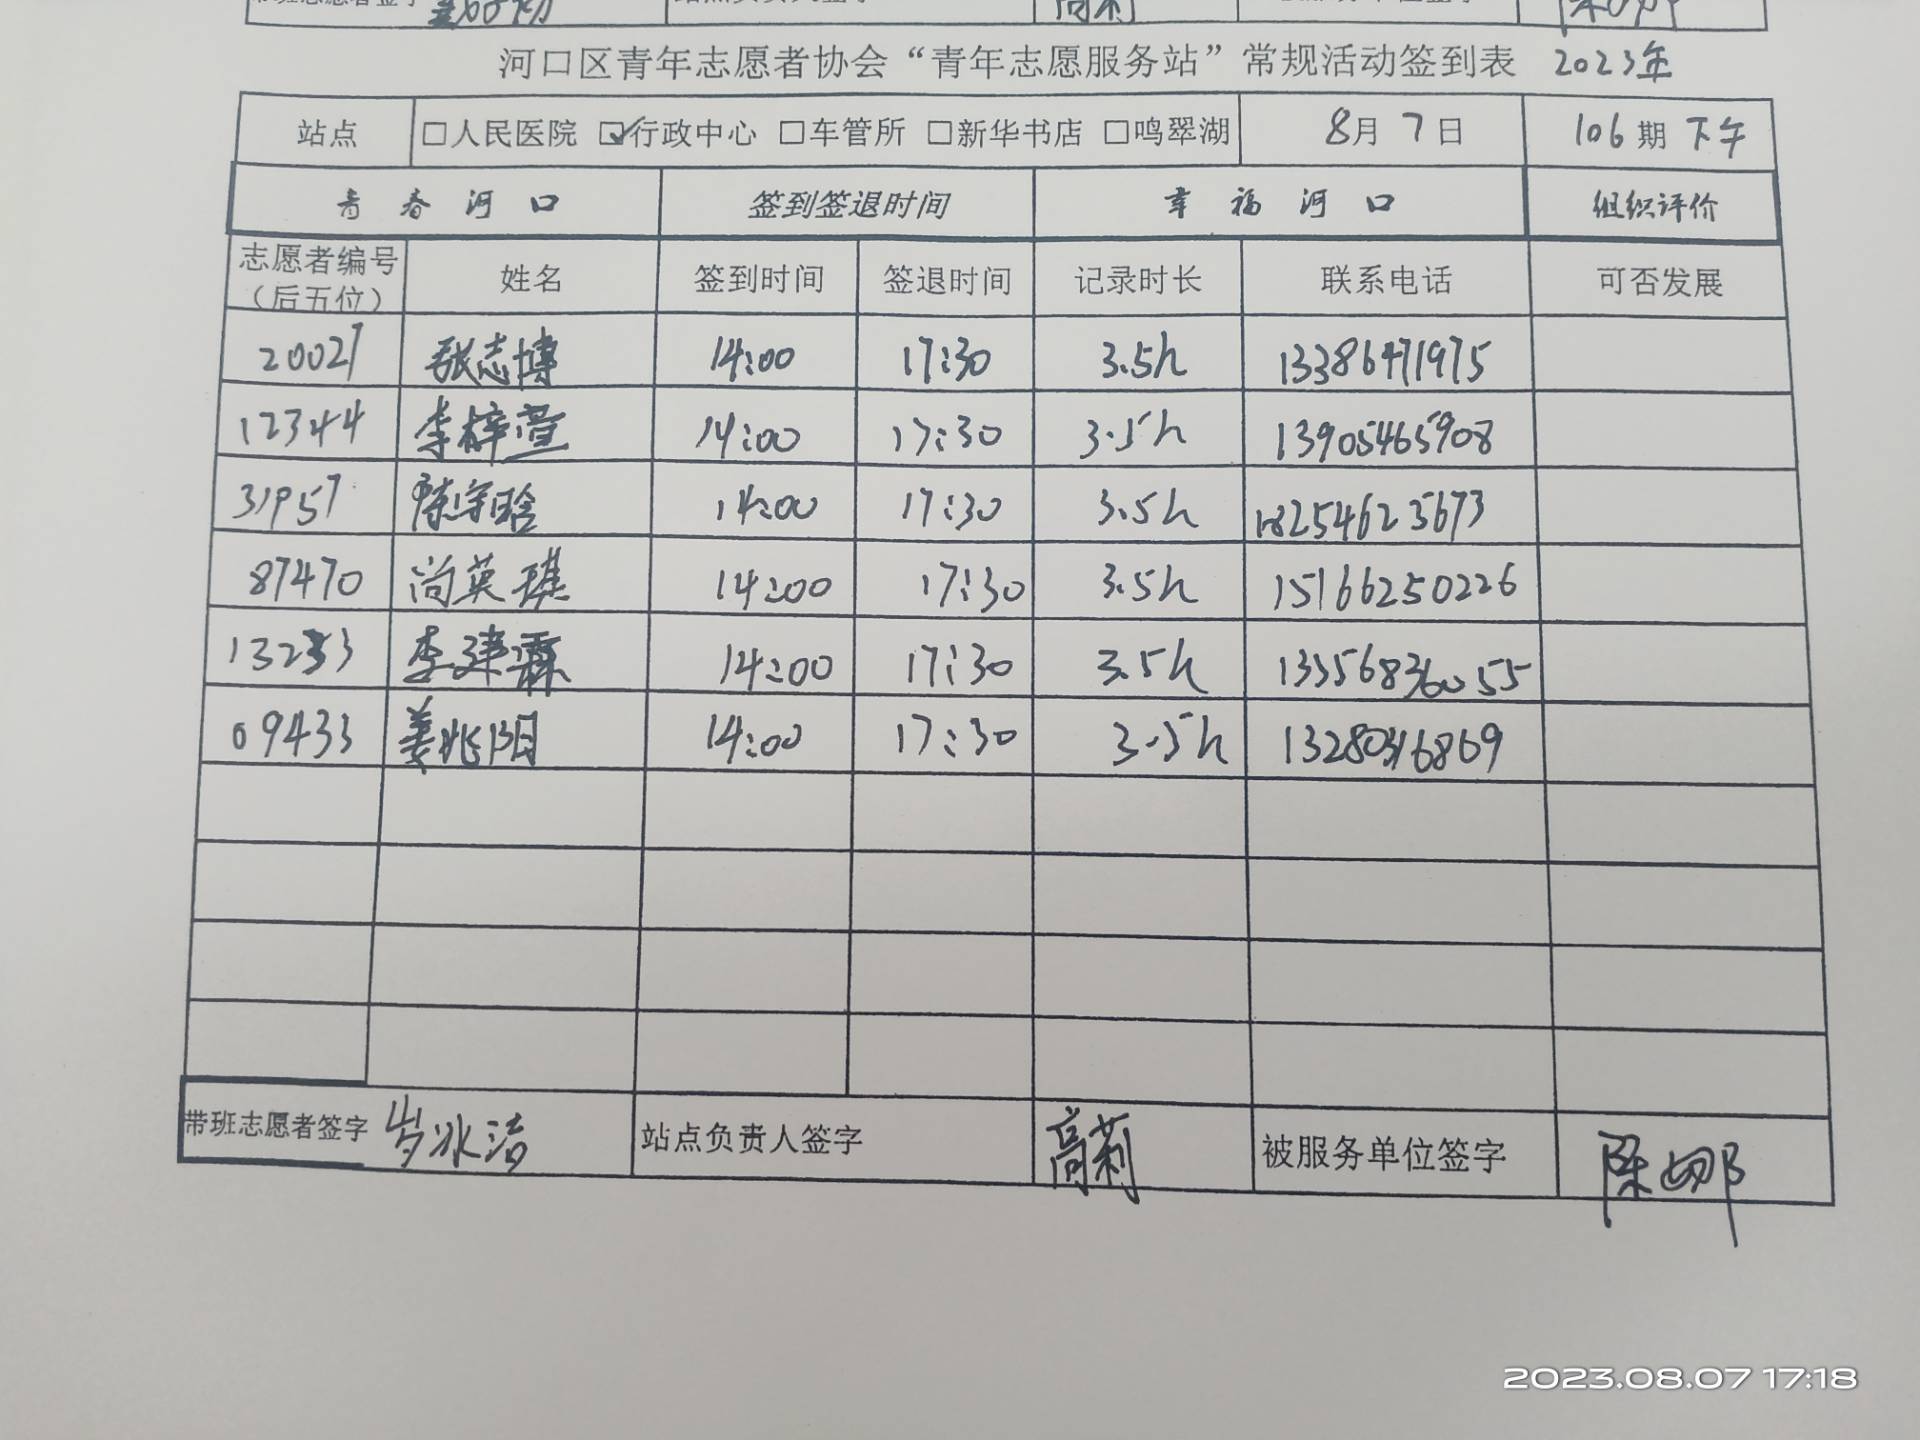 带班志愿者签字 站点负责人签字 高莉
河口区青年志愿者协会“青年志愿服务站”常规活动签到表 2023年
站点 □人民医院 ☑行政中心 □车管所 □新华书店 □鸣翠湖 8月7日 106期 下午
青春河口 签到签退时间 幸福河口 组织评价
志愿者编号
（后五位） 姓名 签到时间 签退时间 记录时长 联系电话 可否发展
20027 张志博 14:00 17:30 3.5h 13386471975
12344 李梓萱 14:00 17:30 3.5h 13905465908
31957 陈宇晗 14:00 17:30 3.5h 18254623673
87470 尚英琪 14:00 17:30 3.5h 15166250226
李建霖 14:00 17:30 3.5h
09433 姜兆阳 14:00 17:30 3.5h
带班志愿者签字 岁冰洁 站点负责人签字 高莉 被服务单位签字 陈娜
2023.08.07 17:18